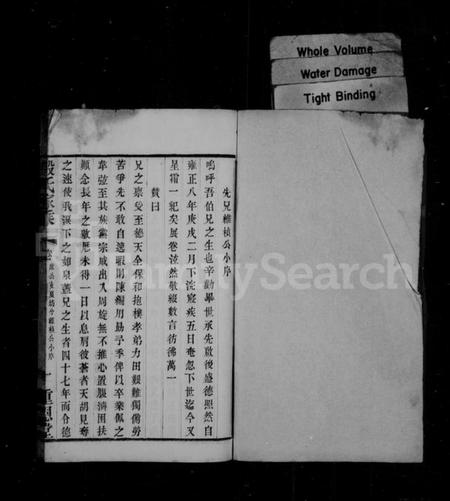 Whole Volume
Water Damage
Tight Binding
先兄維楨公小序
嗚呼吾伯兄之生也辛勤畢世承先啟後盛德照然自
雍正八年庚戌二月下浣寢疾五日奄忽下世迄今又
星霜一紀矣展卷泫然敬綴數言彷彿萬一
贊曰
兄之稟受至德天全保和抱樸孝弟力田艱難備嘗勞
苦爭先不敢自逸暇則陳編用勗予季俾以卒業佩之
韋弦至其族黨宗戚出入周旋無不推心置腹濟困扶
顛念長年之勤歷未得一日以息肩彼蒼者天胡見奪
之速使我淚下之如泉蓋兄之生者四十七年而令德
FamilySearch